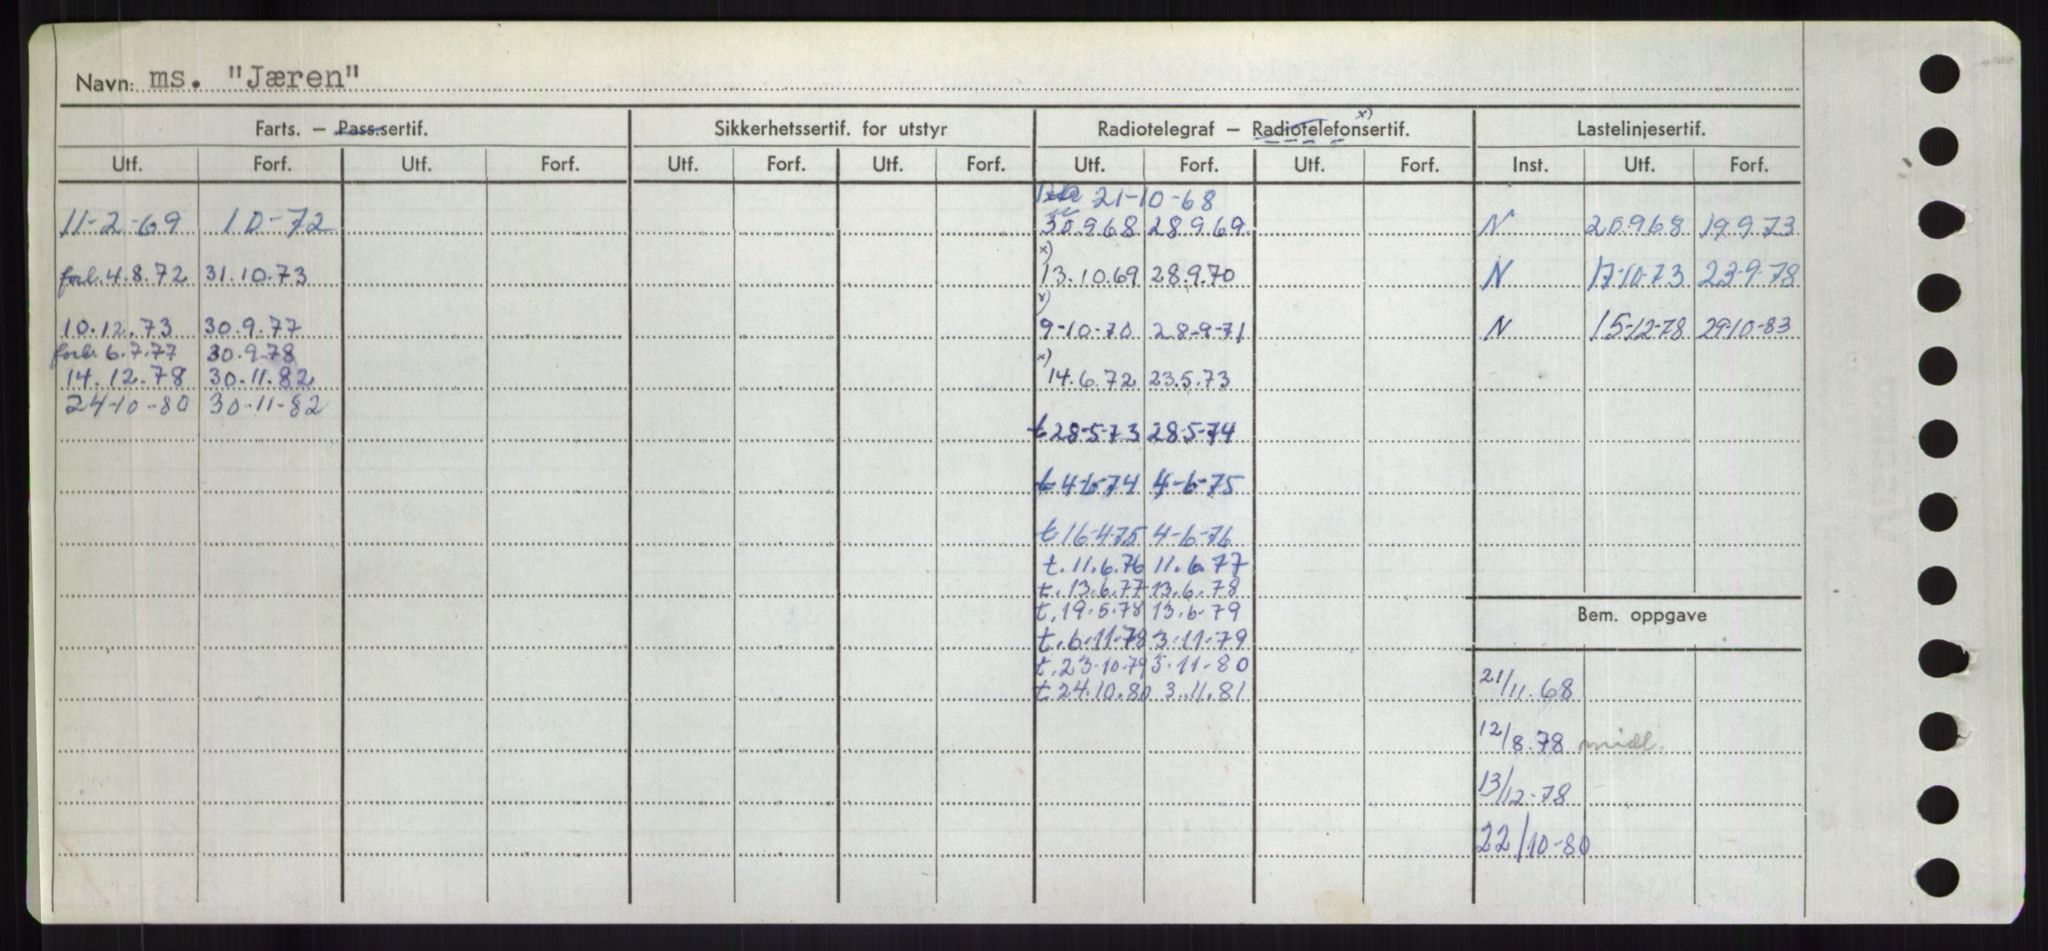 Navn: ms. "Jæren"
Farts. – Pass.sertif. Sikkerhetssertif. for utstyr Radiotelegraf – Radiotelefonsertif. x) Lastelinjesertif.
Utf. Forf. Utf. Forf. Utf. Forf. Utf. Forf. Utf. Forf. Utf. Forf. Inst. Utf. Forf.
21-10-68
11-2-69 10-72 30.9.68 28.9.69. N 20.9.68 19.9.73
x)
forl. 4.8.72 31.10.73 13.10.69 28.9.70 N 17-10-73 23-9-78
x)
10.12.73 30.9.77 9-10-70 28-9-71 N 15-12-78 29-10-83
forl. 6.7.77 30.9.78 x)
14.12.78 30.11.82 14.6.72 23.5.73
24-10-80 30-11-82
t 28-5-73 28-5-74
t 4-6-74 4-6-75
t 16-4-75 4-6-76
t. 11.6.76 11.6.77
t. 13.6.77 13.6.78
t. 19.5.78 13.6.79
Bem. oppgave
t. 6-11-78 3-11-79
t. 23-10-79 3-11-80
21/11.68
t. 24.10.80 3.11.81
12/8.78 midl.
13/12-78
22/10-80